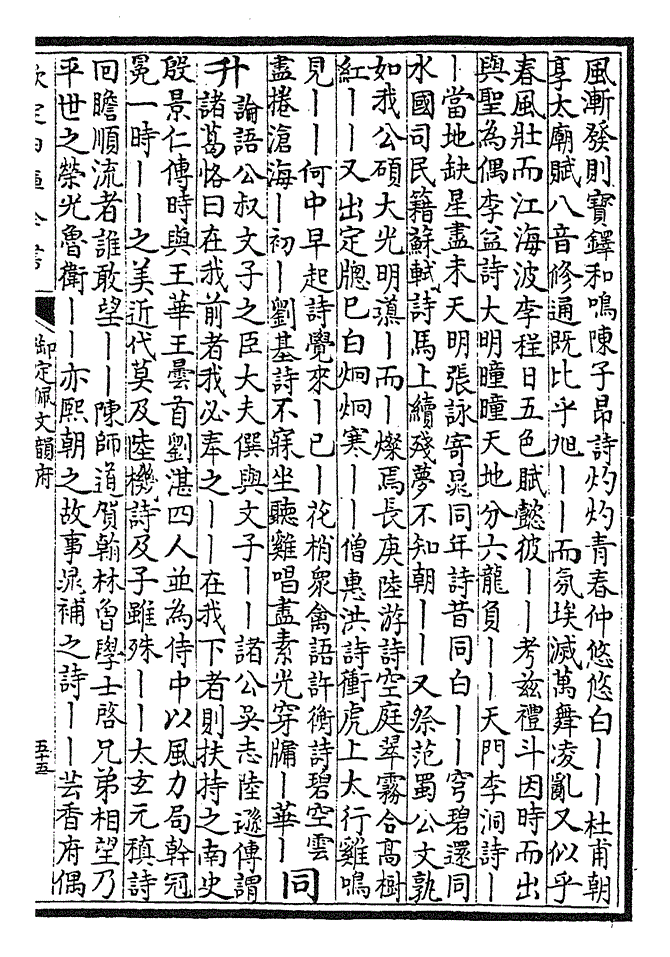 風漸發則寶鐸和鳴陳子昂詩灼灼青春仲悠悠白｜｜杜甫朝
享太廟賦八音修通既比乎旭｜｜而氛埃滅萬舞凌亂又似乎
春風壯而江海波李程日五色賦懿彼｜｜考兹禮斗因時而出
與聖為偶李益詩大明曈曈天地分六龍負｜｜天門李洞詩｜
｜當地缺星盡未天明張詠寄晁同年詩昔同白｜｜穹碧還同
水國司民籍蘇軾詩馬上續殘夢不知朝｜｜又祭范蜀公文孰
如我公碩大光明｜而｜燦焉長庚陸游詩空庭翠霧合高樹
紅｜｜又出定牕已白炯炯寒｜｜僧惠洪詩衝虎上太行雞鳴
見｜｜何中早起詩覺來｜已｜花梢衆禽語許衡詩碧空雲
盡捲滄海｜初｜劉基詩不寐坐聽雞唱盡素光穿牖｜華｜
同
升
論語公叔文子之臣大夫僎與文子｜｜諸公吳志陸遜傳謂
諸葛恪曰在我前者我必奉之｜｜在我下者則扶持之南史
殷景仁傳時與王華王曇首劉湛四人並為侍中以風力局幹冠
冕一時｜｜之美近代莫及陸機詩及子雖殊｜｜太玄元稹詩
回瞻順流者誰敢望｜｜陳師道賀翰林魯學士啓兄弟相望乃
平世之榮光魯衛｜｜亦熙朝之故事晁補之詩｜｜芸香府偶
欽定四庫全書
御定佩文韻府
五十五